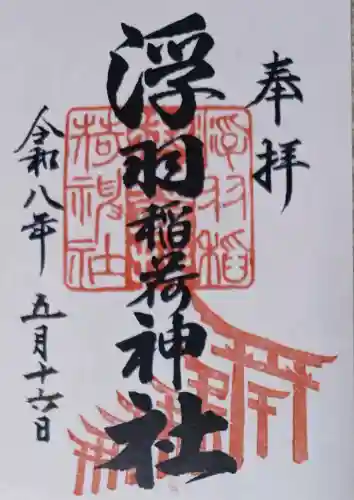 奉拝
浮羽稲荷神社
令和八年 五月十六日
浮羽稲
荷神社